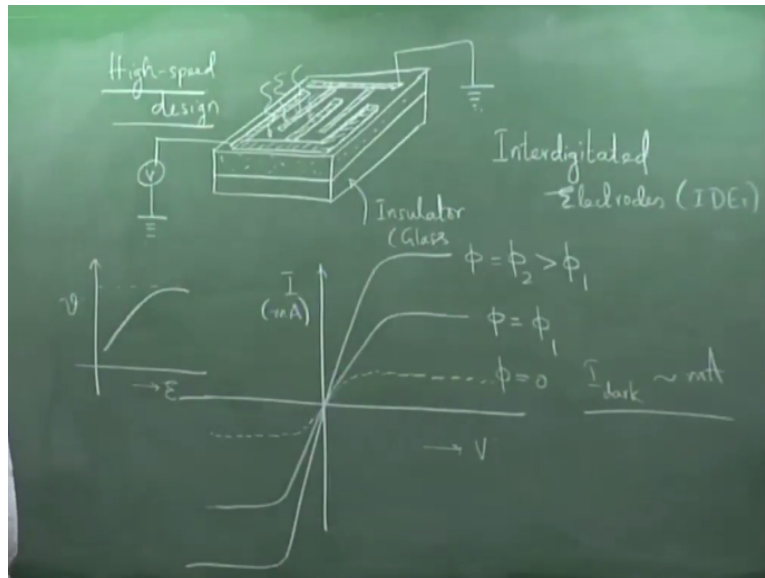 High-speed
design
V
Insulator
(Glass
Interdigitated
Electrodes (IDEs)
ϑ
→ ε
I
(mA)
→ V
ϕ = ϕ₂ > ϕ₁
ϕ = ϕ₁
ϕ = 0
I_dark ~ mA